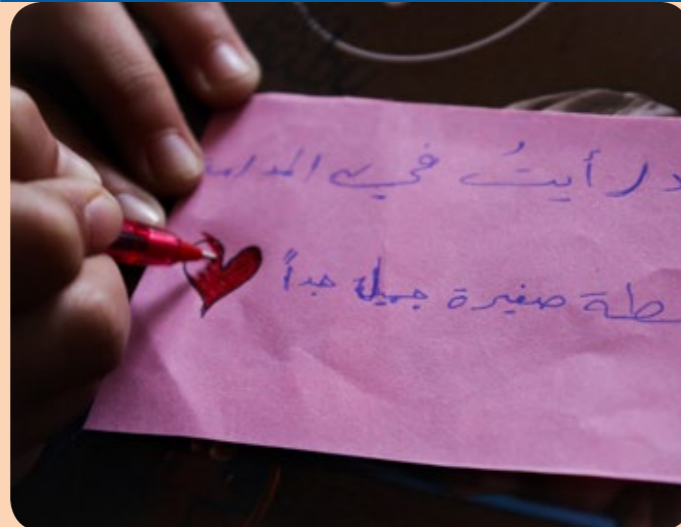 رأيتُ في المدرسة
صغيرة جميلة جداً